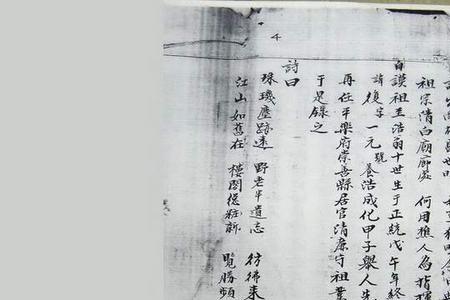 祖宗清白廟廊處 何用樵人為指
自謨祖至浩翁十世生于正統戊午年終
諱復字一元號養浩成化甲子舉人
再任平樂府崇善縣居官清廉守祖業
于是錄之
詩曰
珠璣塵跡遠 野老半遺志 彷彿來
江山如舊在 樓閣從粧新 覽勝頻